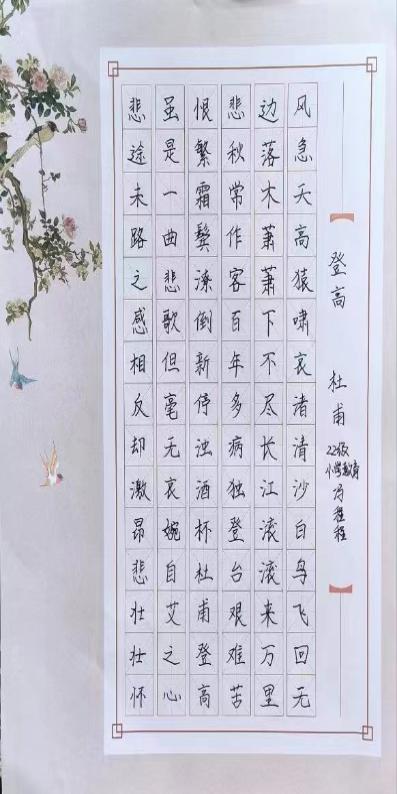 登高 杜甫
22级
小学教育
程程
风急天高猿啸哀渚清沙白鸟飞回无
边落木萧萧下不尽长江滚滚来万里
悲秋常作客百年多病独登台艰难苦
恨繁霜鬓潦倒新停浊酒杯杜甫登高
虽是一曲悲歌但毫无哀婉自艾之心
悲途未路之感相反却激昂悲壮壮怀